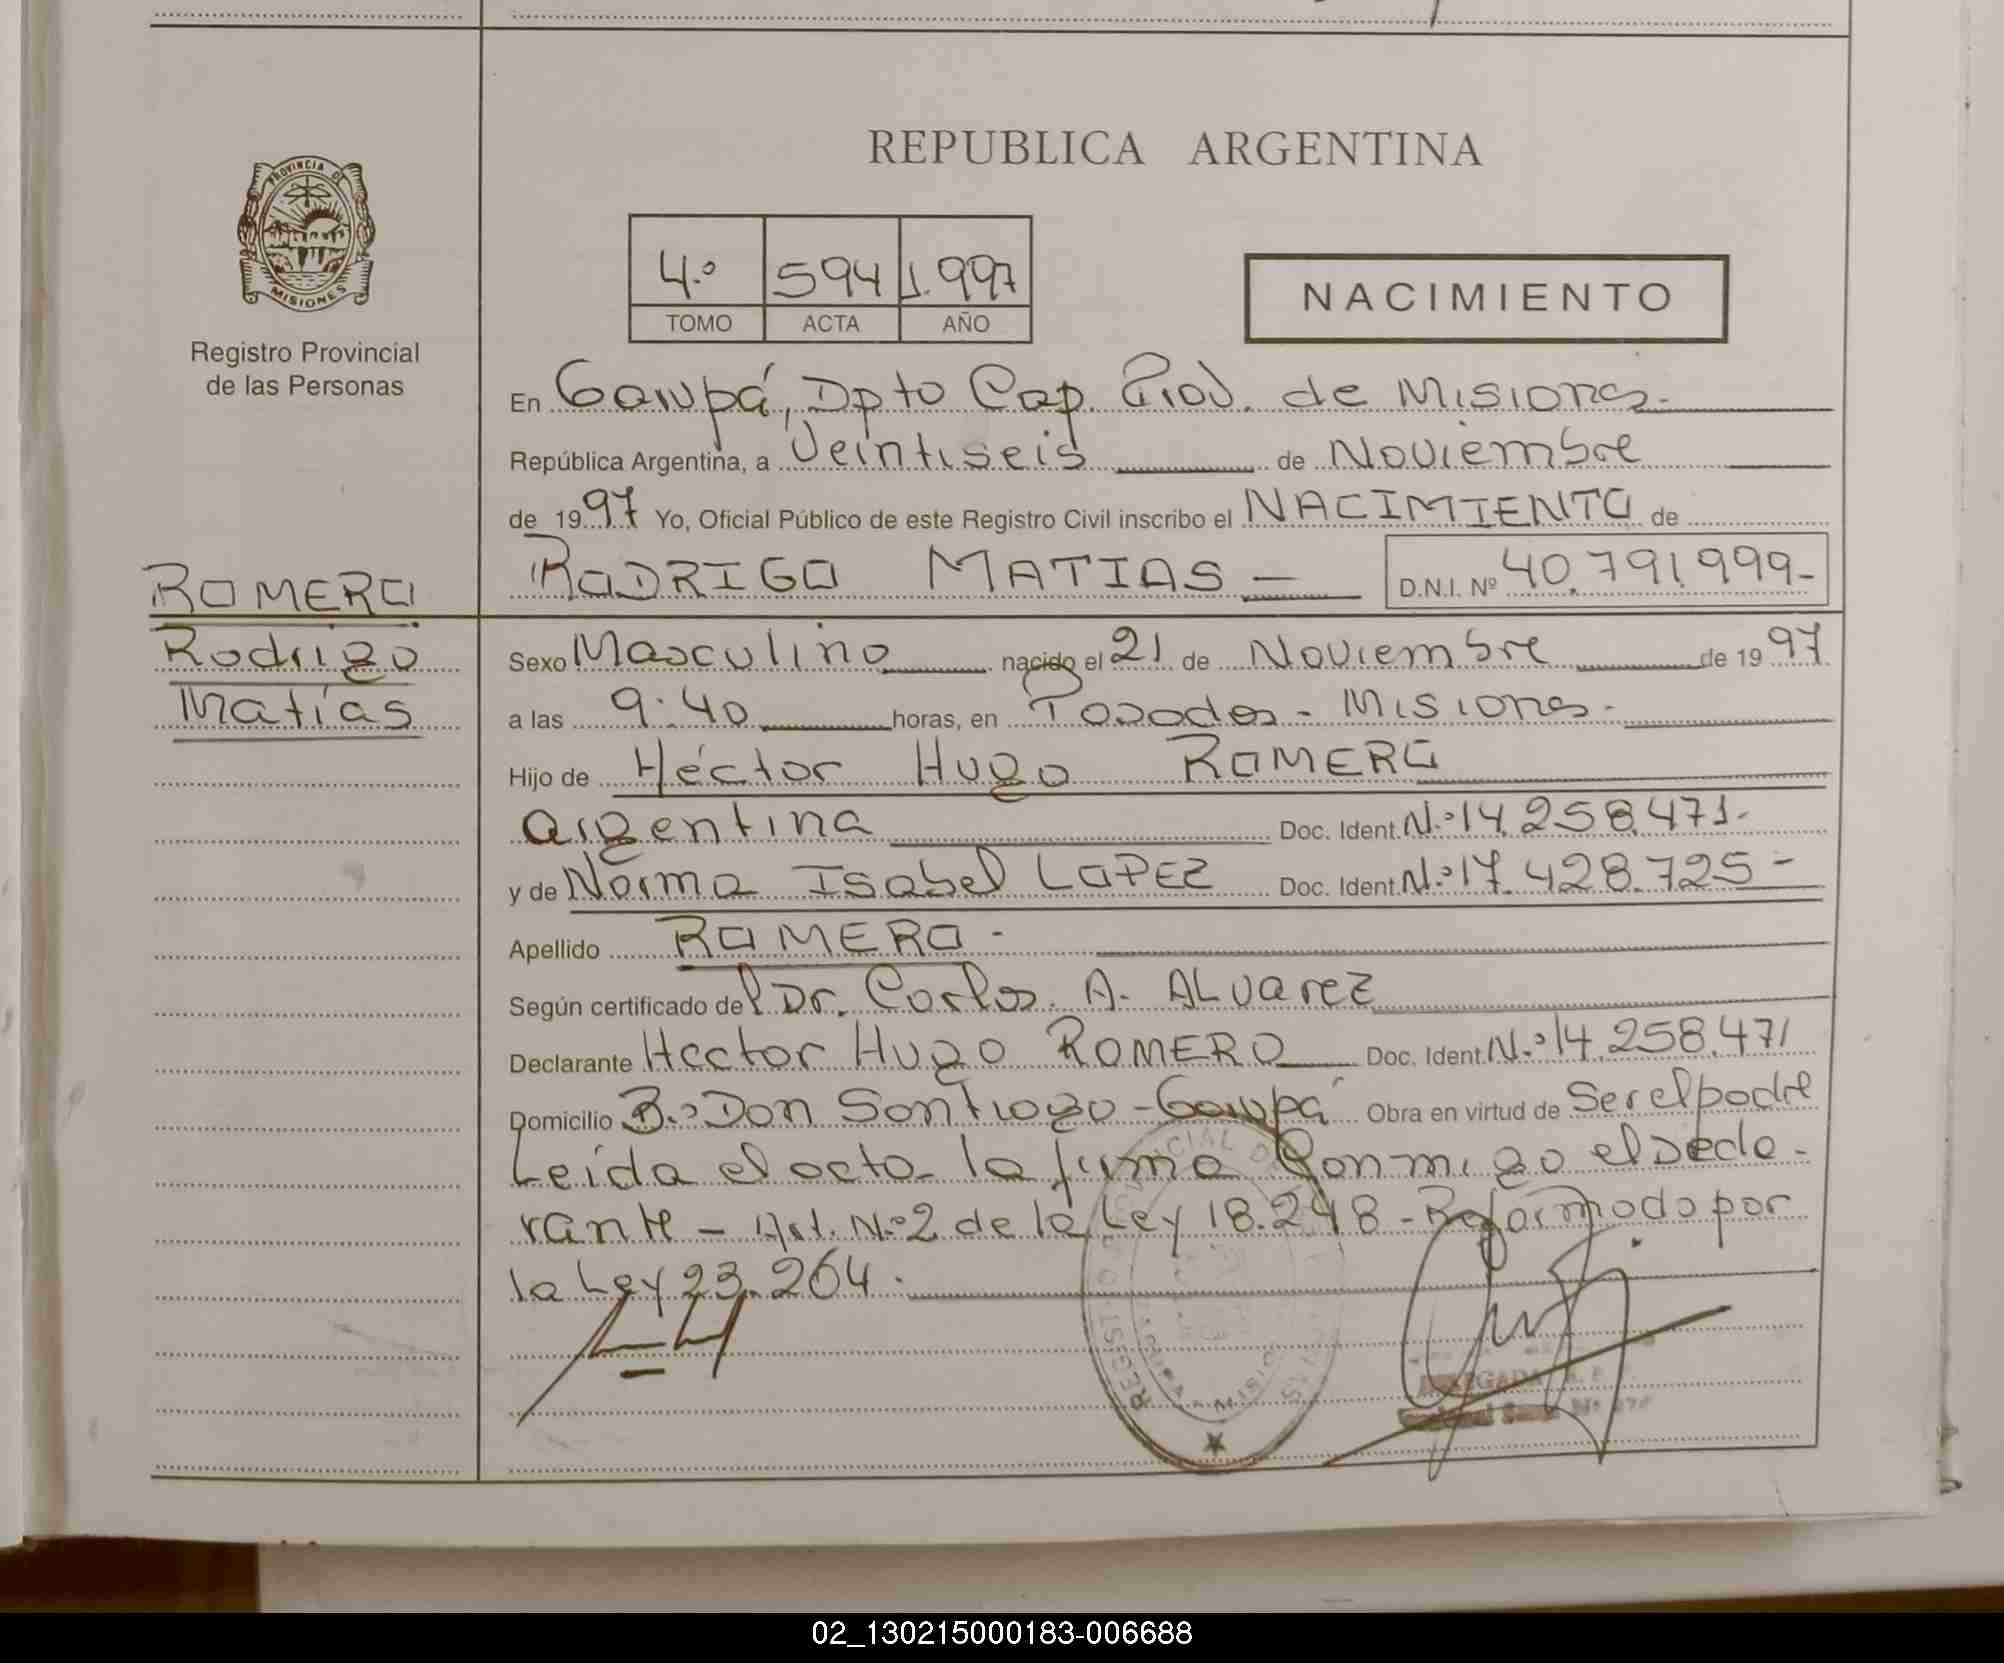 REPUBLICA ARGENTINA
PROVINCIA DE
MISIONES
Registro Provincial
de las Personas
4.º 594 1.997
TOMO ACTA AÑO
NACIMIENTO
En Garupá, Dpto Cap. Prov. de Misiones.
República Argentina, a Veintiseis de Noviembre
de 1997 Yo, Oficial Público de este Registro Civil inscribo el NACIMIENTO de
RODRIGO MATIAS — D.N.I. Nº 40.791.999-
ROMERO
Rodrigo
Matías
Sexo Masculino nacido el 21 de Noviembre de 1997
a las 9:40 horas, en Posadas - Misiones.
Hijo de Héctor Hugo ROMERO
argentina Doc. Ident. N.º 14.258.471-
y de Norma Isabel LOPEZ Doc. Ident. N.º 17.428.725-
Apellido ROMERO-
Según certificado del Dr. Carlos. A. ALvarez
Declarante Hector Hugo ROMERO Doc. Ident. N.º 14.258.471
Domicilio B.º Don Santiago - Garupá Obra en virtud de Ser el padre
Leída el acta la firma Conmigo el Decla-
rante - Art. N.º 2 de la Ley 18.248 - Reformado por
la Ley 23.264.
02_130215000183-006688